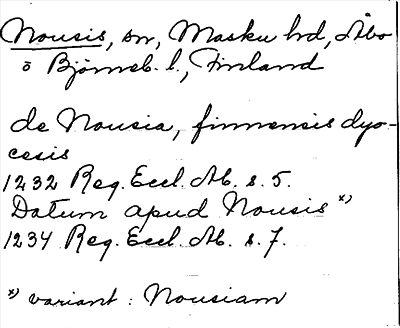 Nousis, sn, Masku hd, Åbo
o Björneb. l., Finland
de Nousia, finnensis dyo-
cesis
1232 Reg. Eccl. Ab. s. 5.
Datum apud Nousis x)
1234 Reg. Eccl. Ab. s. 7.
x) variant: Nousiam